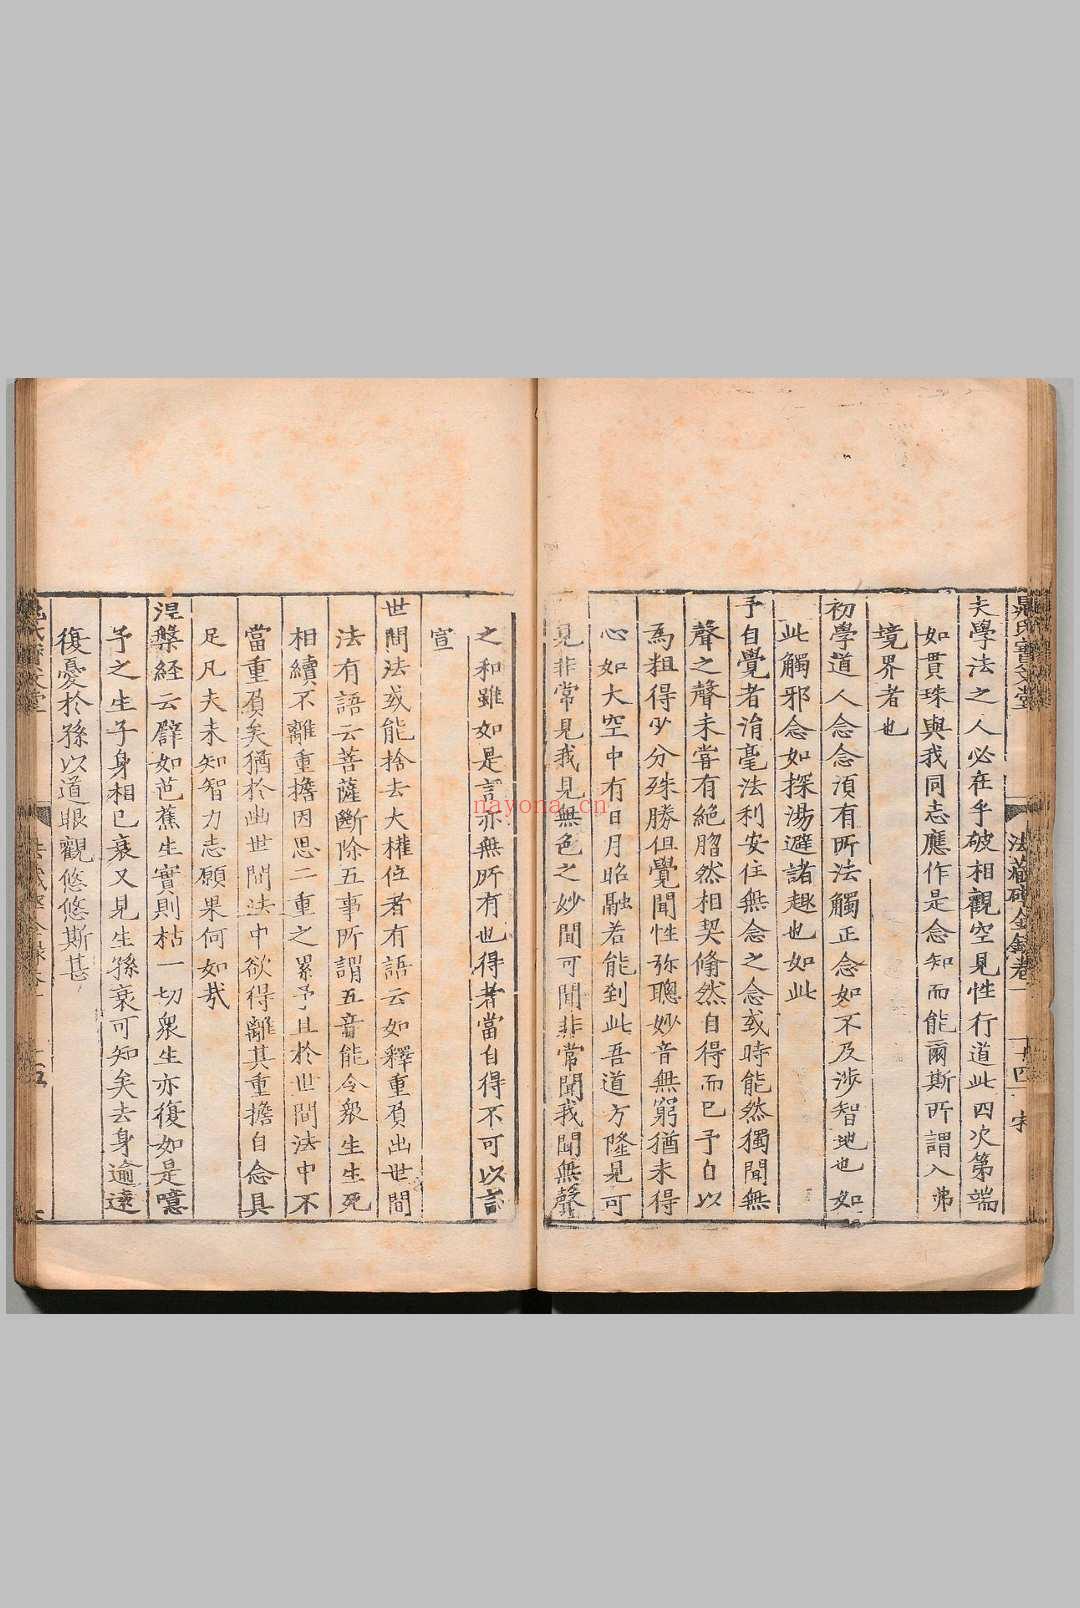 夫學法之人必在乎破相觀空見性行道此四次第端
如貫珠與我同志應作是念知而能爾斯所謂入弗
境界者也
初學道人念念須有所法觸正念如不及涉智地也如
此觸邪念如探湯避諸趣也如此
予自覺者治毫法利安住無念之念或時能然獨聞無
聲之聲未嘗有絕䐇然相契翛然自得而已予自以
為粗得少分殊勝但覺聞性弥聰妙音無窮猶未得
心如大空中有日月昭融若能到此吾道方隆見可
見非常見我見無色之妙聞可聞非常聞我聞無聲
之和雖如是言亦無所有也得者當自得不可以言
宣
世間法或能捨去大權位者有語云如釋重負出世間
法有語云菩薩斷除五事所謂五音能令衆生生死
相續不離重擔因思二重之累予且於世間法中不
當重負矣猶於出世間法中欲得離其重擔自念具
足凡夫未知智力志願果何如哉
涅槃経云譬如芭蕉生實則枯一切衆生亦復如是噫
予之生子身相已衰又見生孫衰可知矣去身逾遠
復憂於孫以道眼觀悠悠斯甚
晁氏寶文堂
法藏碎金錄卷一
十四
nayona.cn